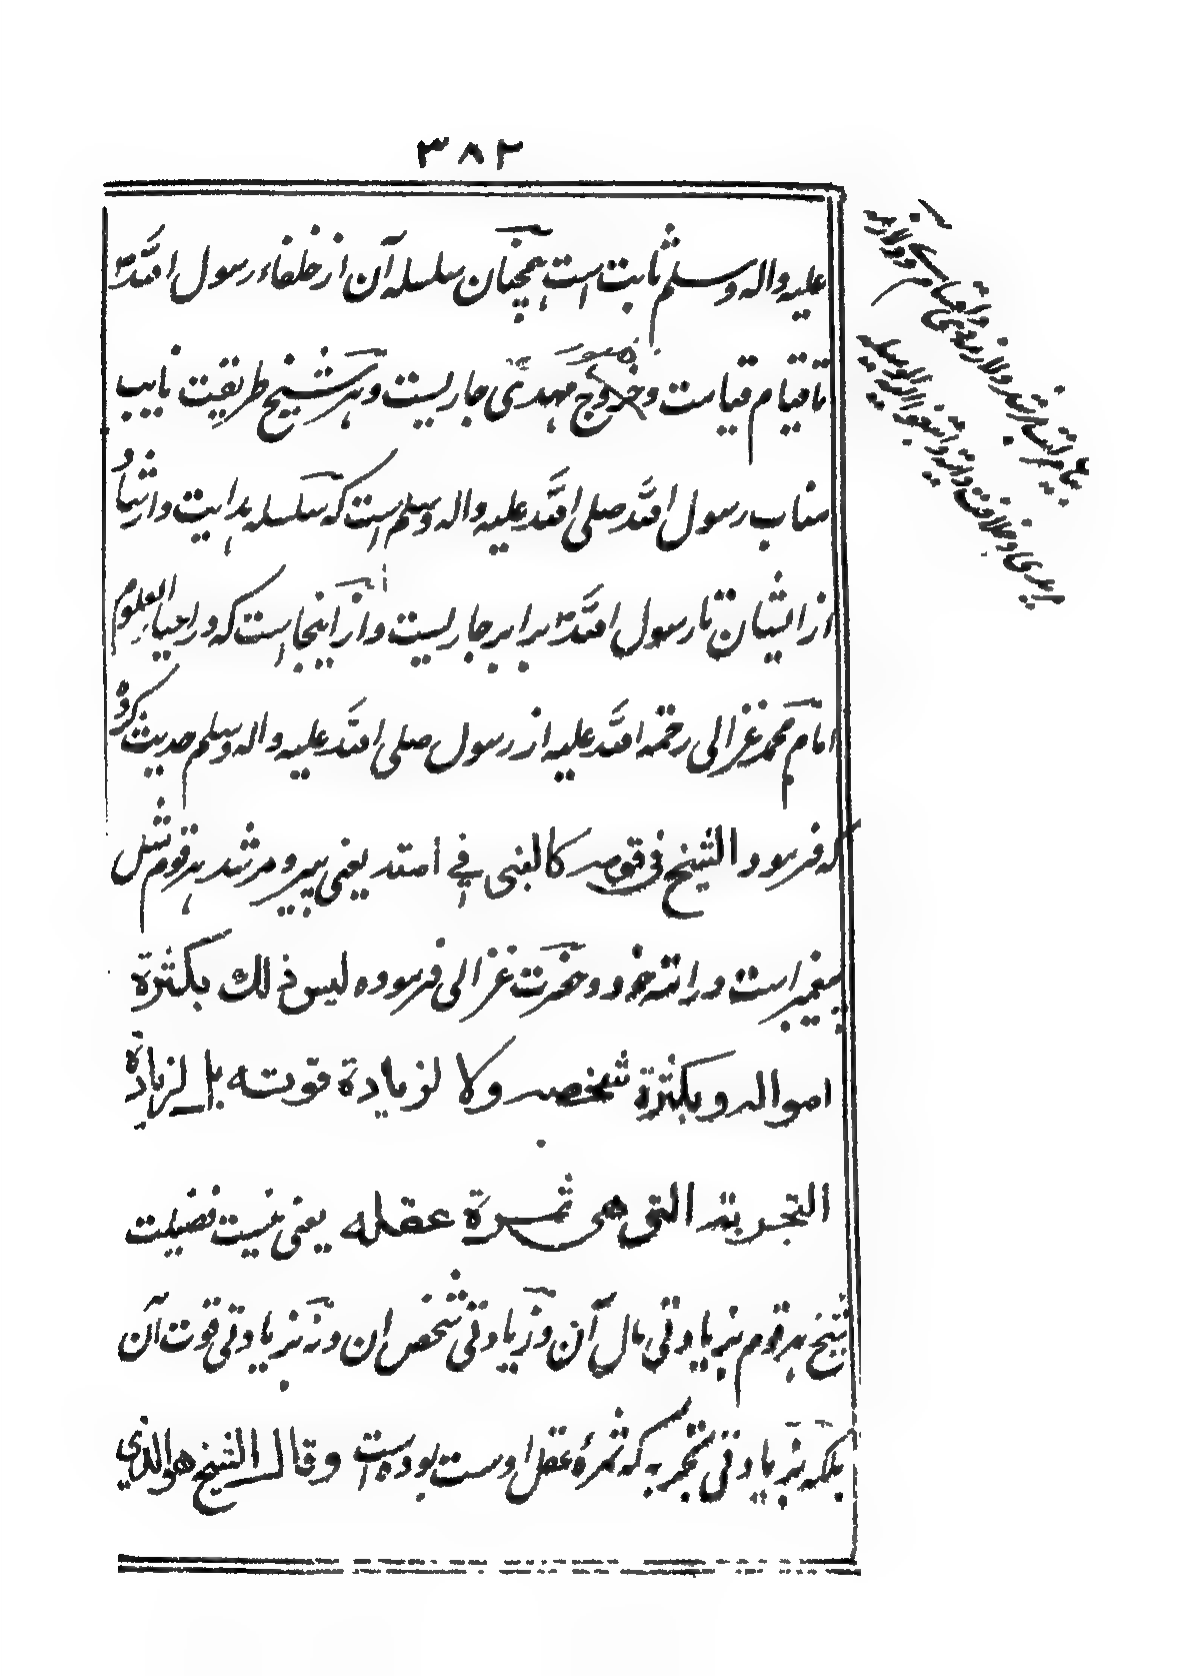 ٣٨٢
علیه واله وسلم ثابت است همچنان سلسله آن از خلفاء رسول الله
تا قیام قیامت و خروج مهدی جاریست و هر شیخ طریقیت نایب
مناب رسول الله صلی الله علیه واله وسلم است که سلسله هدایت وارثیاد
از ایشان تا رسول الله برابر جاریست و از اینجا است که در احیاء العلوم
امام محمد غزالی رحمة الله علیه از رسول صلی الله علیه واله وسلم حدیث کرده
که فرمود الشیخ فی قومه کالنبی فی امته یعنی پیر و مرشد هر قوم مثل
پیغمبر است در امته خود و حضرت غزالی فرموده لیس ذلک بکثرة
امواله و بکثرة شخصه ولا لزیادة قوته بل لزیادة
التجربته التی هی ثمرة عقله یعنی نیست فضیلت
شیخ هر قوم بزیادتی مال آن و زیادتی شخص ان ونه بزیادتی قوت آن
بلکه بزیادتی تجربه که ثمرهٔ عقل اوست بوده است وقال الشیخ هو الذی